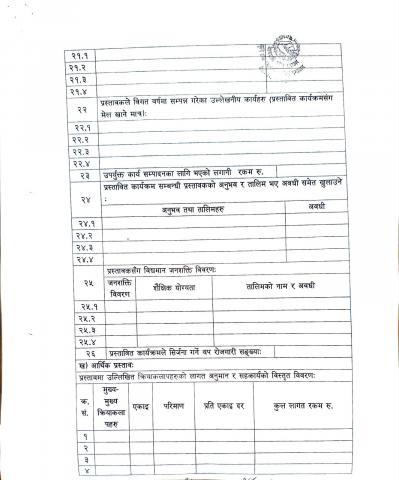 २१.१
२१.२
२१.३
२१.४
२२ प्रस्तावकले विगत वर्षमा सम्पन्न गरेका उल्लेखनीय कार्यहरु (प्रस्तावित कार्यक्रमसंग
मेल खाने मात्र):
२२.१
२२.२
२२.३
२२.४
२३ उपर्युक्त कार्य सम्पादनका लागि भएको लगानी रकम रु.
२४ प्रस्तावित कार्यक्रम सम्बन्धी प्रस्तावकको अनुभव र तालिम भए अवधी समेत खुलाउने
:
अनुभव तथा तालिमहरु अवधी
२४.१
२४.२
२४.३
२४.४
२५ प्रस्तावकसँग विद्यमान जनशक्ति विवरण:
जनशक्ति
विवरण शैक्षिक योग्यता तालिमको नाम र अवधी
२५.१
२५.२
२५.३
२५.४
२६ प्रस्तावित कार्यक्रमले सिर्जना गर्ने थप रोजगारी सङ्ख्या:
ख) आर्थिक प्रस्ताव:
प्रस्तावमा उल्लिखित क्रियाकलापहरुको लागत अनुमान र सहकार्यको विस्तृत विवरण:
क्र.
सं. मुख्य-
मुख्य
क्रियाकला
पहरु एकाइ परिमाण प्रति एकाइ दर कुल लागत रकम रु.
१
२
३
४